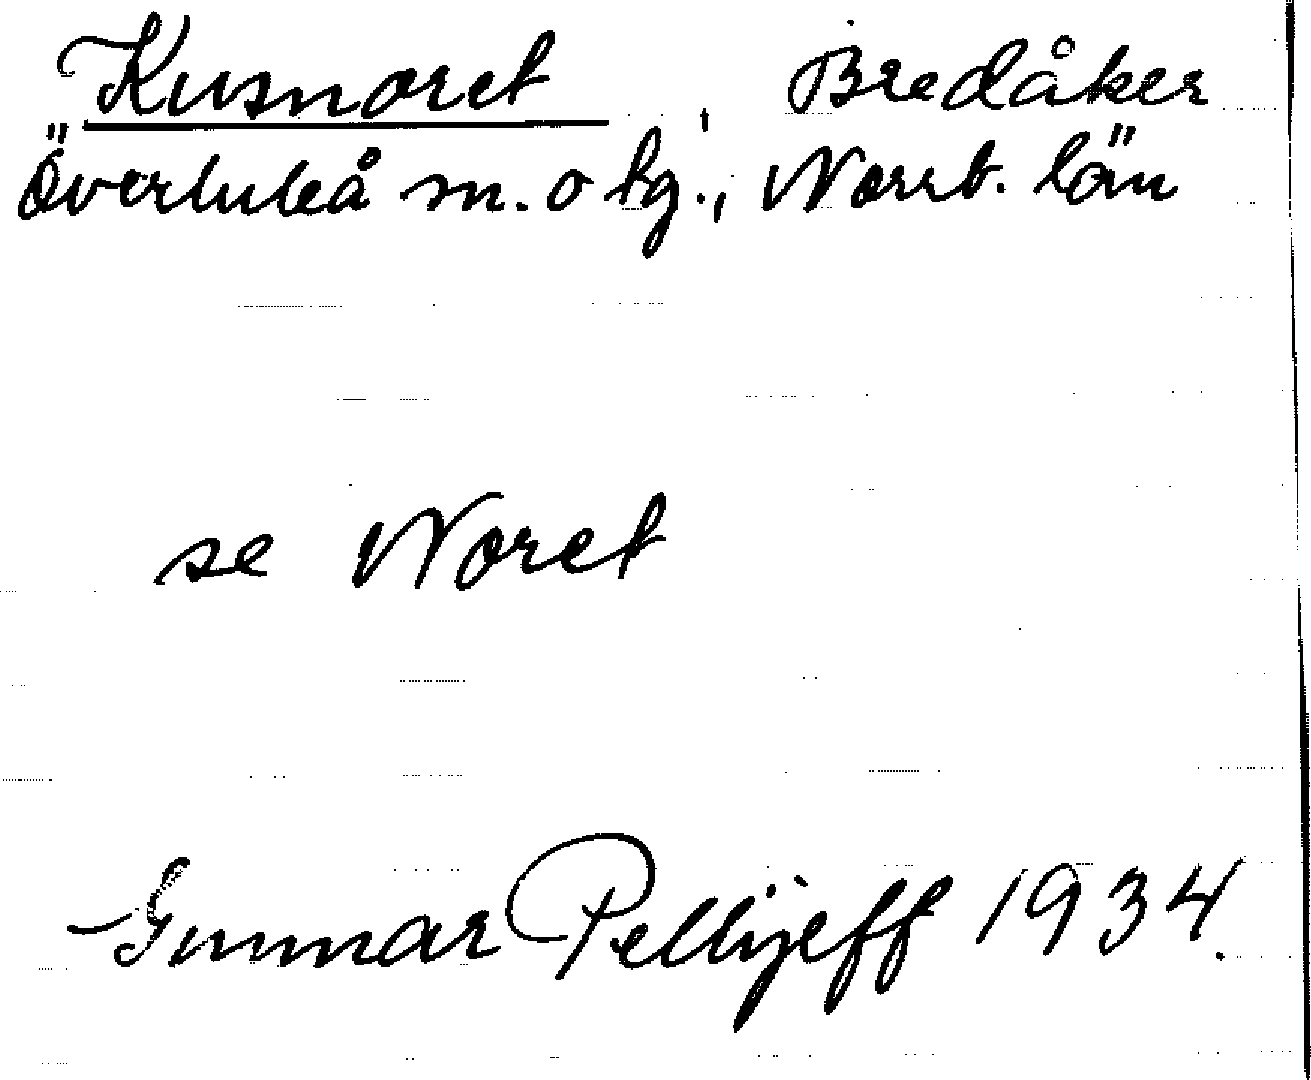 Kusnoret, Bredåker
Överluleå m. o tg., Norrb. län
se Noret
Gunnar Pellijeff 1934.